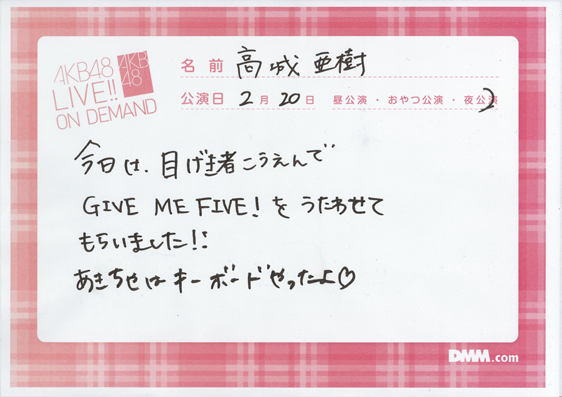 AKB48
LIVE!!
ON DEMAND
AKB
48
名前 高城 亜樹
公演日 2月20日 昼公演・おやつ公演・夜公演
今日は、目げき者こうえんで
GIVE ME FIVE! を うたわせて
もらいました!!
あきちゃは キーボードやったよ♡
DMM.com